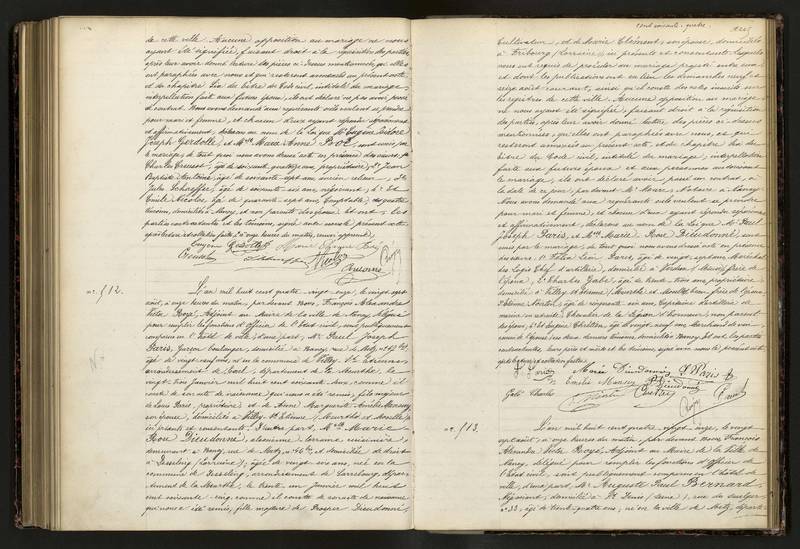 de cette ville. Aucune opposition au mariage ne nous
ayant été signifiée, faisant droit à la réquisition des parties
après leur avoir donné lecture des pièces ci-dessus mentionnées, qu'elles
ont paraphées avec nous et qui resteront annexées au présent acte
et du chapitre six du titre du Code civil, intitulé du mariage
interpellation faite aux futurs époux, ils ont déclaré ne pas avoir passé
de contrat. Nous avons demandé aux représentants veulent se prendre
pour mari et femme, et chacun d'eux ayant répondu séparément
et affirmativement, déclarons au nom de la Loi que Mr Eugène Isidore
Joseph Gerdolle, et Mlle Marie Anne sont unis par
le mariage, de tout quoi nous avons dressé acte en présence
Charles Creusat, âgé de soixante
Baptiste Antoine, âgé de soixante sept ans, ancien
Jules Schaeffer, âgé de soixante-six ans, négociant, 4° Et
Emile Nicolas, âgé de quarante-sept ans, Comptable, des quatre
témoins, domiciliés à Nancy, et non parents des époux. Et ont, les
parties contractantes et les témoins, signé avec nous le présent acte
après lecture
Eugène Gerdolle
Creusat
Antoine
n°. 512.
L'an mil huit cent quatre vingt-onze, le vingt sept
août, à onze heures du matin, par devant Nous, François Alexandre
Victor Adjoint au Maire de la ville de Nancy, délégué
pour remplir les fonctions d'Officier de l'Etat civil, sont publiquement
comparus en l'hôtel de ville d'une part, Mr Paul Joseph
Paris, Garçon boulanger, domicilié à Nancy, rue de Metz,
âgé de vingt-neuf ans, né en la commune de Villey-St-Etienne,
arrondissement de Toul, département de la Meurthe, le
vingt-trois Janvier mil huit cent soixante deux, comme il
conste de son acte de naissance qui nous a été remis, fils majeur
de Louis Paris, propriétaire et de Anne Marguerite Amélie Mansuy
son épouse, domiciliés à Villey-St-Etienne (Meurthe et Moselle)
ici présents et consentants. D'autre part, Mlle Marie
Rose Dieudonné, alsacienne-lorraine cuisinière,
demeurant à Nancy, rue de Metz, n° 46 et domiciliée de droit
à (Lorraine), âgée de vingt-six ans, née en la
commune de arrondissement de Sarrebourg, dépar-
tement de la Meurthe, le trente un janvier mil huit
cent soixante-cinq, comme il conste de son acte de naissance
qui nous a été remis, fille majeure de Prosper Dieudonné,
cent soixante-quatre.
Cultivateur, et de Marie Clément, son épouse, domiciliés
à Fribourg (Lorraine), ici présents et consentants. Lesquels
nous ont requis de procéder au mariage projeté entre eux
et dont les publications ont eu lieu les dimanches neuf et
seize août courant, ainsi qu'il conste des actes inscrits sur
les registres de cette ville. Aucune opposition au mariage
ne nous ayant été signifiée, faisant droit à la réquisition
des parties, après leur avoir donné lecture des pièces ci-dessus
mentionnées, qu'elles ont paraphées avec nous, et qui
resteront annexées au présent acte, et du chapitre six du
titre du Code civil, intitulé du mariage, interpellation
faite aux futurs époux, et aux personnes autorisant
le mariage, ils ont déclaré avoir passé un contrat, à
la date de ce jour, par devant Me Notaire à Nancy.
Nous avons demandé aux représentants veulent-ils se prendre
pour mari et femme, et chacun d'eux ayant répondu séparément
et affirmativement, déclarons au nom de la Loi que Mr Paul
Joseph Paris, et Mlle Marie Rose Dieudonné sont
unis par le mariage, de tout quoi nous avons dressé acte en présence
Paris, âgé de vingt-sept ans, Maréchal
des Logis Chef d'artillerie, domicilié à Verdun (Meuse), frère de
l'époux, 2° Charles Gabé, âgé de trente trois ans, propriétaire
domicilié à Villey-St-Etienne (Meurthe et Moselle)
âgé de cinquante six ans, Capitaine d'artillerie de
marine en retraite, Chevalier de la Légion d'honneur, non parent
des époux, 4° Et Eugène Chrétien, âgé de vingt-neuf ans, Marchand de vin
les deux derniers témoins, domiciliés à Nancy. Et ont les parties
contractantes, leurs père et mère et les témoins, signé avec nous le présent acte
après lecture
Marie Dieudonné P. Paris
L. Paris Emelie Mansuy P. Dieudonné
Gabé Charles
n°. 513.
L'an mil huit cent quatre vingt-onze, le vingt
sept août, à onze heures du matin, par devant Nous, François
Alexandre Victor Adjoint au Maire de la Ville de
Nancy, délégué pour remplir les fonctions d'Officier de
l'Etat civil, sont publiquement comparus en l'hôtel de
ville, d'une part, Mr Auguste Paul Bernard,
Négociant, domicilié à St Denis (Seine), rue
n° 33, âgé de trente-quatre ans, né en la ville de Metz, départe-